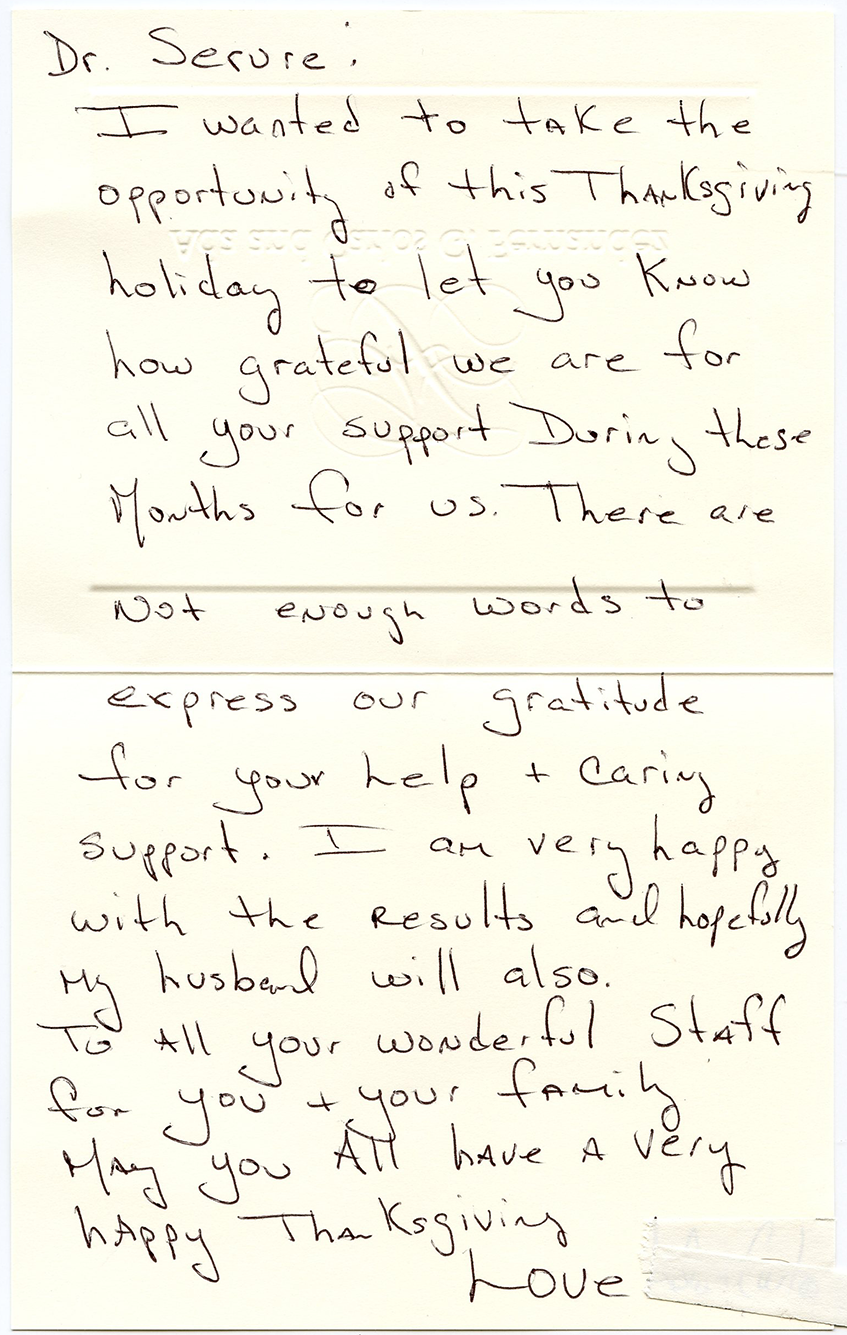 Dr. Serure:
I wanted to take the
opportunity of this Thanksgiving
holiday to let you know
how grateful we are for
all your support During these
Months for us. There are
Not enough words to
express our gratitude
for your help + caring
support. I am very happy
with the results and hopefully
My husband will also.
To All your wonderful Staff
for you + your family
May you All have a very
happy Thanksgiving
Love